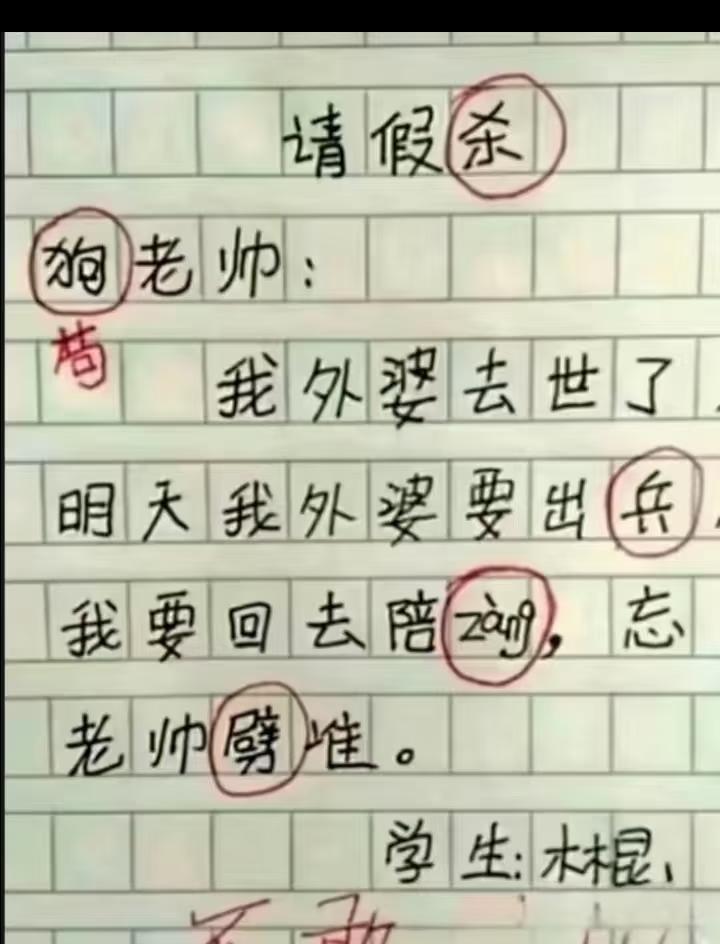 请假杀
狗老帅：
苟
我外婆去世了，
明天我外婆要出兵，
我要回去陪zàng，忘
老帅劈唯。
学生：木棍、